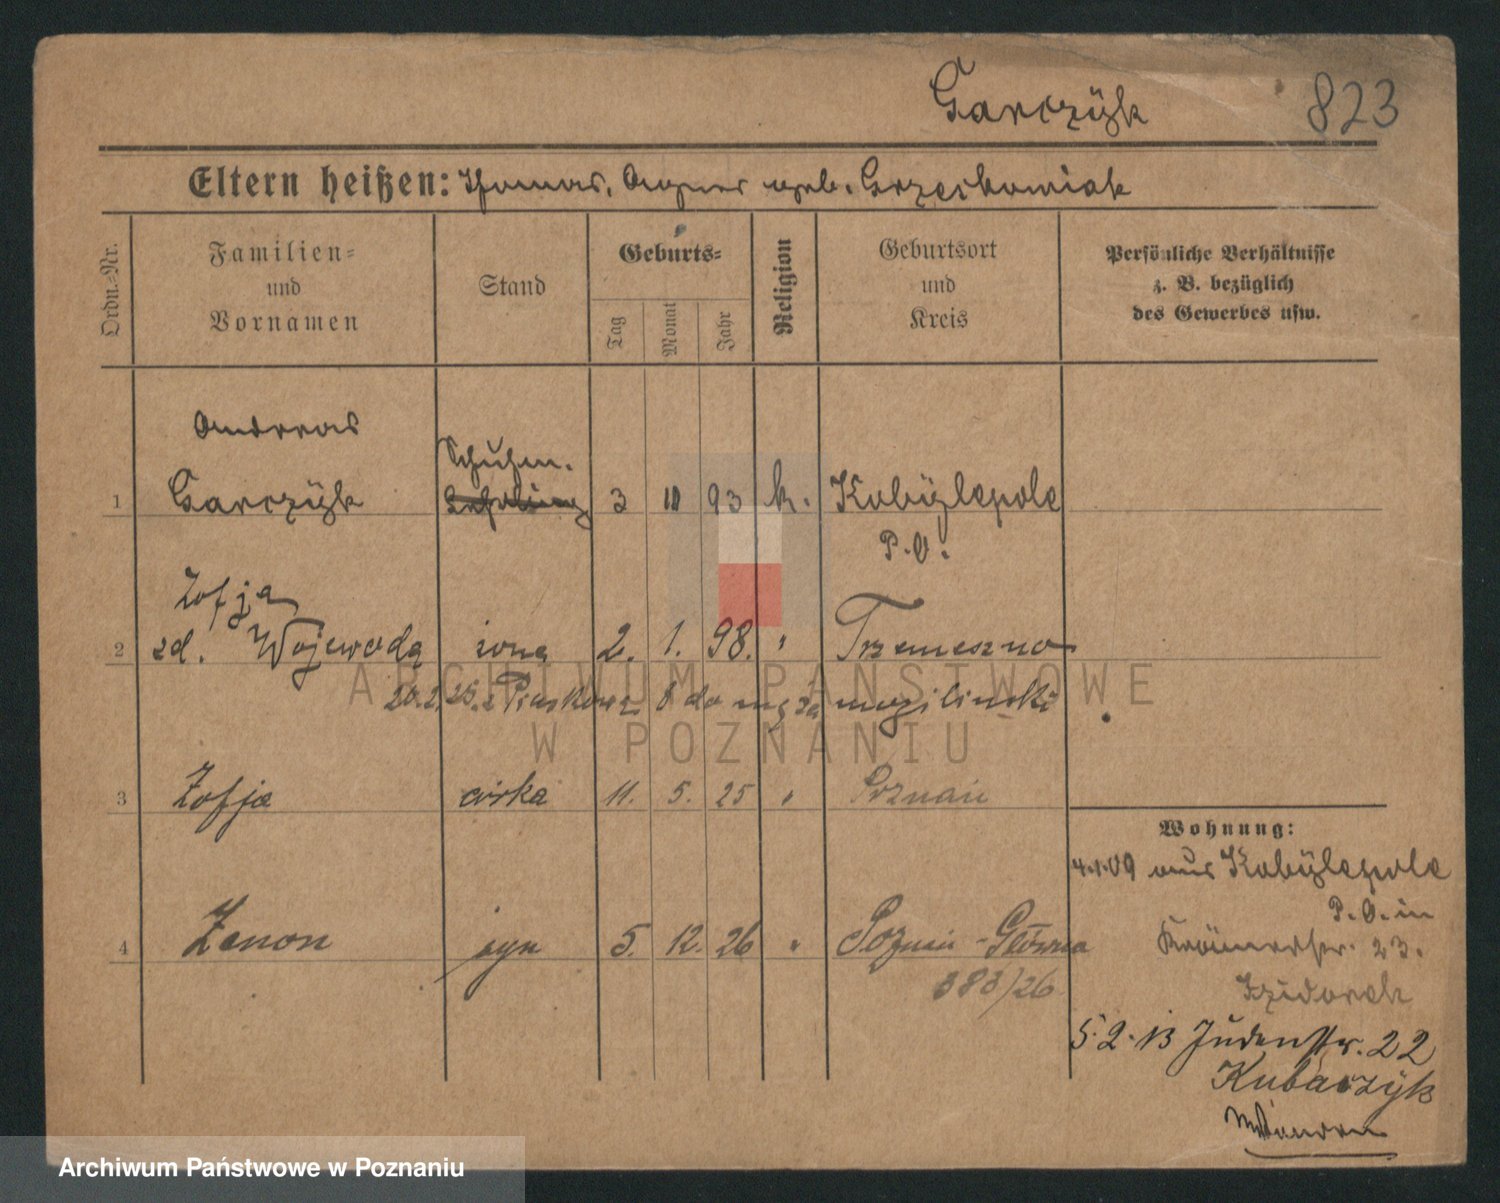 Garczÿk 823
Eltern heißen: Thomas, Agnes geb. Grzeskowiak
Ordn.-Nr.
Familien-
und
Vornamen
Stand
Geburts-
Tag
Monat
Jahr
Religion
Geburtsort
und
Kreis
Persönliche Verhältnisse
z. B. bezüglich
des Gewerbes usw.
Andreas
Schuhm.
1 Garczÿk Lehrling 3 11 93 k. Kobÿlepole
P.O.
Zofja
2 zd. Wojewoda żona 2. 1. 98. " Trzemeszno
20.2.25. z Piaskowa 8 do męża
3 Zofja córka 11. 5. 25 " Poznań
Wohnung:
4.1.09 aus Kobÿlepole
P.O. in
4 Zenon syn 5. 12. 26 " Poznań-Główna
23.
383/26
Izidorek
5.2.13 Judenstr. 22
Kubaczyk
ARCHIWUM PAŃSTWOWE
W POZNANIU
Archiwum Państwowe w Poznaniu